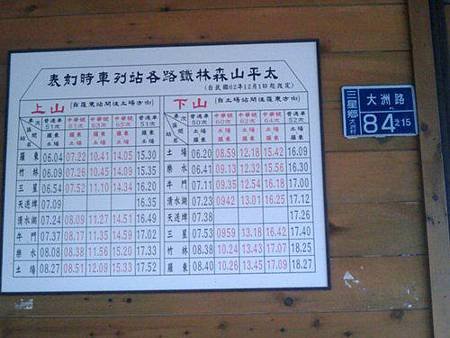 太平山森林鐵路各站列車時刻表
(自民國62年12月1日起改定)
上山 (自羅東站開往土場方向)
車次 普通車 中華號 中華號 中華號 普通車
站名 羅東 羅東 羅東 羅東 羅東
土場 土場 土場 土場 土場
羅東 06.04 07.22 10.41 14.05 15.30
竹林 06.09 07.27 10.46 14.10 15.36
三星 06.54 07.52 11.10 14.34 16.20
天送埤 07.09 16.35
清水湖 07.24 08.09 11.27 14.51 16.49
牛鬥 07.37 08.17 11.35 14.59 17.02
樂水 08.08 08.38 11.56 15.20 17.33
土場 08.27 08.51 12.09 15.33 17.52
下山 (自土場站開往羅東方向)
車次 普通車 中華號 中華號 中華號 普通車
站名 土場 土場 土場 土場 土場
羅東 羅東 羅東 羅東 羅東
土場 06.20 08.59 12.18 15.42 16.09
樂水 06.41 09.13 12.32 15.56 16.30
牛鬥 07.11 09.35 12.54 16.18 17.00
清水湖 07.23 0942 13.01 16.25 17.12
天送埤 07.38 17.26
三星 07.53 0959 13.18 16.42 17.40
竹林 08.38 10.24 13.43 17.07 18.25
羅東 08.40 10.26 13.45 17.09 18.27
三星鄉
大洲路
84之15